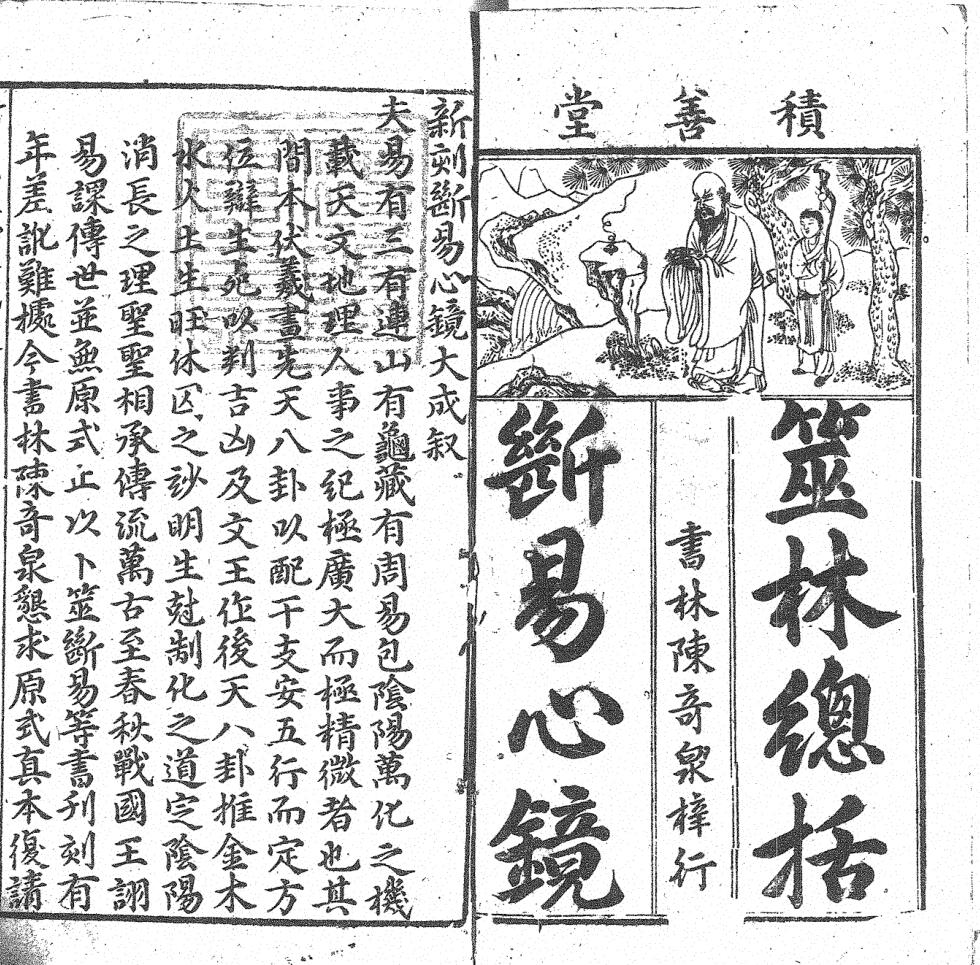 積善堂
筮林總括
書林陳奇泉梓行
斷易心鏡
新刻斷易心鏡大成叙
夫易有三有連山有龜藏有周易包陰陽萬化之機
載天文地理人事之紀極廣大而極精微者也其
間本伏羲畫先天八卦以配干支安五行而定方
位辯生死以判吉凶及文王作後天八卦推金木
水火土生旺休囚之訬明生尅制化之道定陰陽
消長之理聖聖相承傳流萬古至春秋戰國王詡
易課傳世並無原式止以卜筮斷易等書刋刻有
年差訛難據今書林陳奇泉懇求原式真本復請